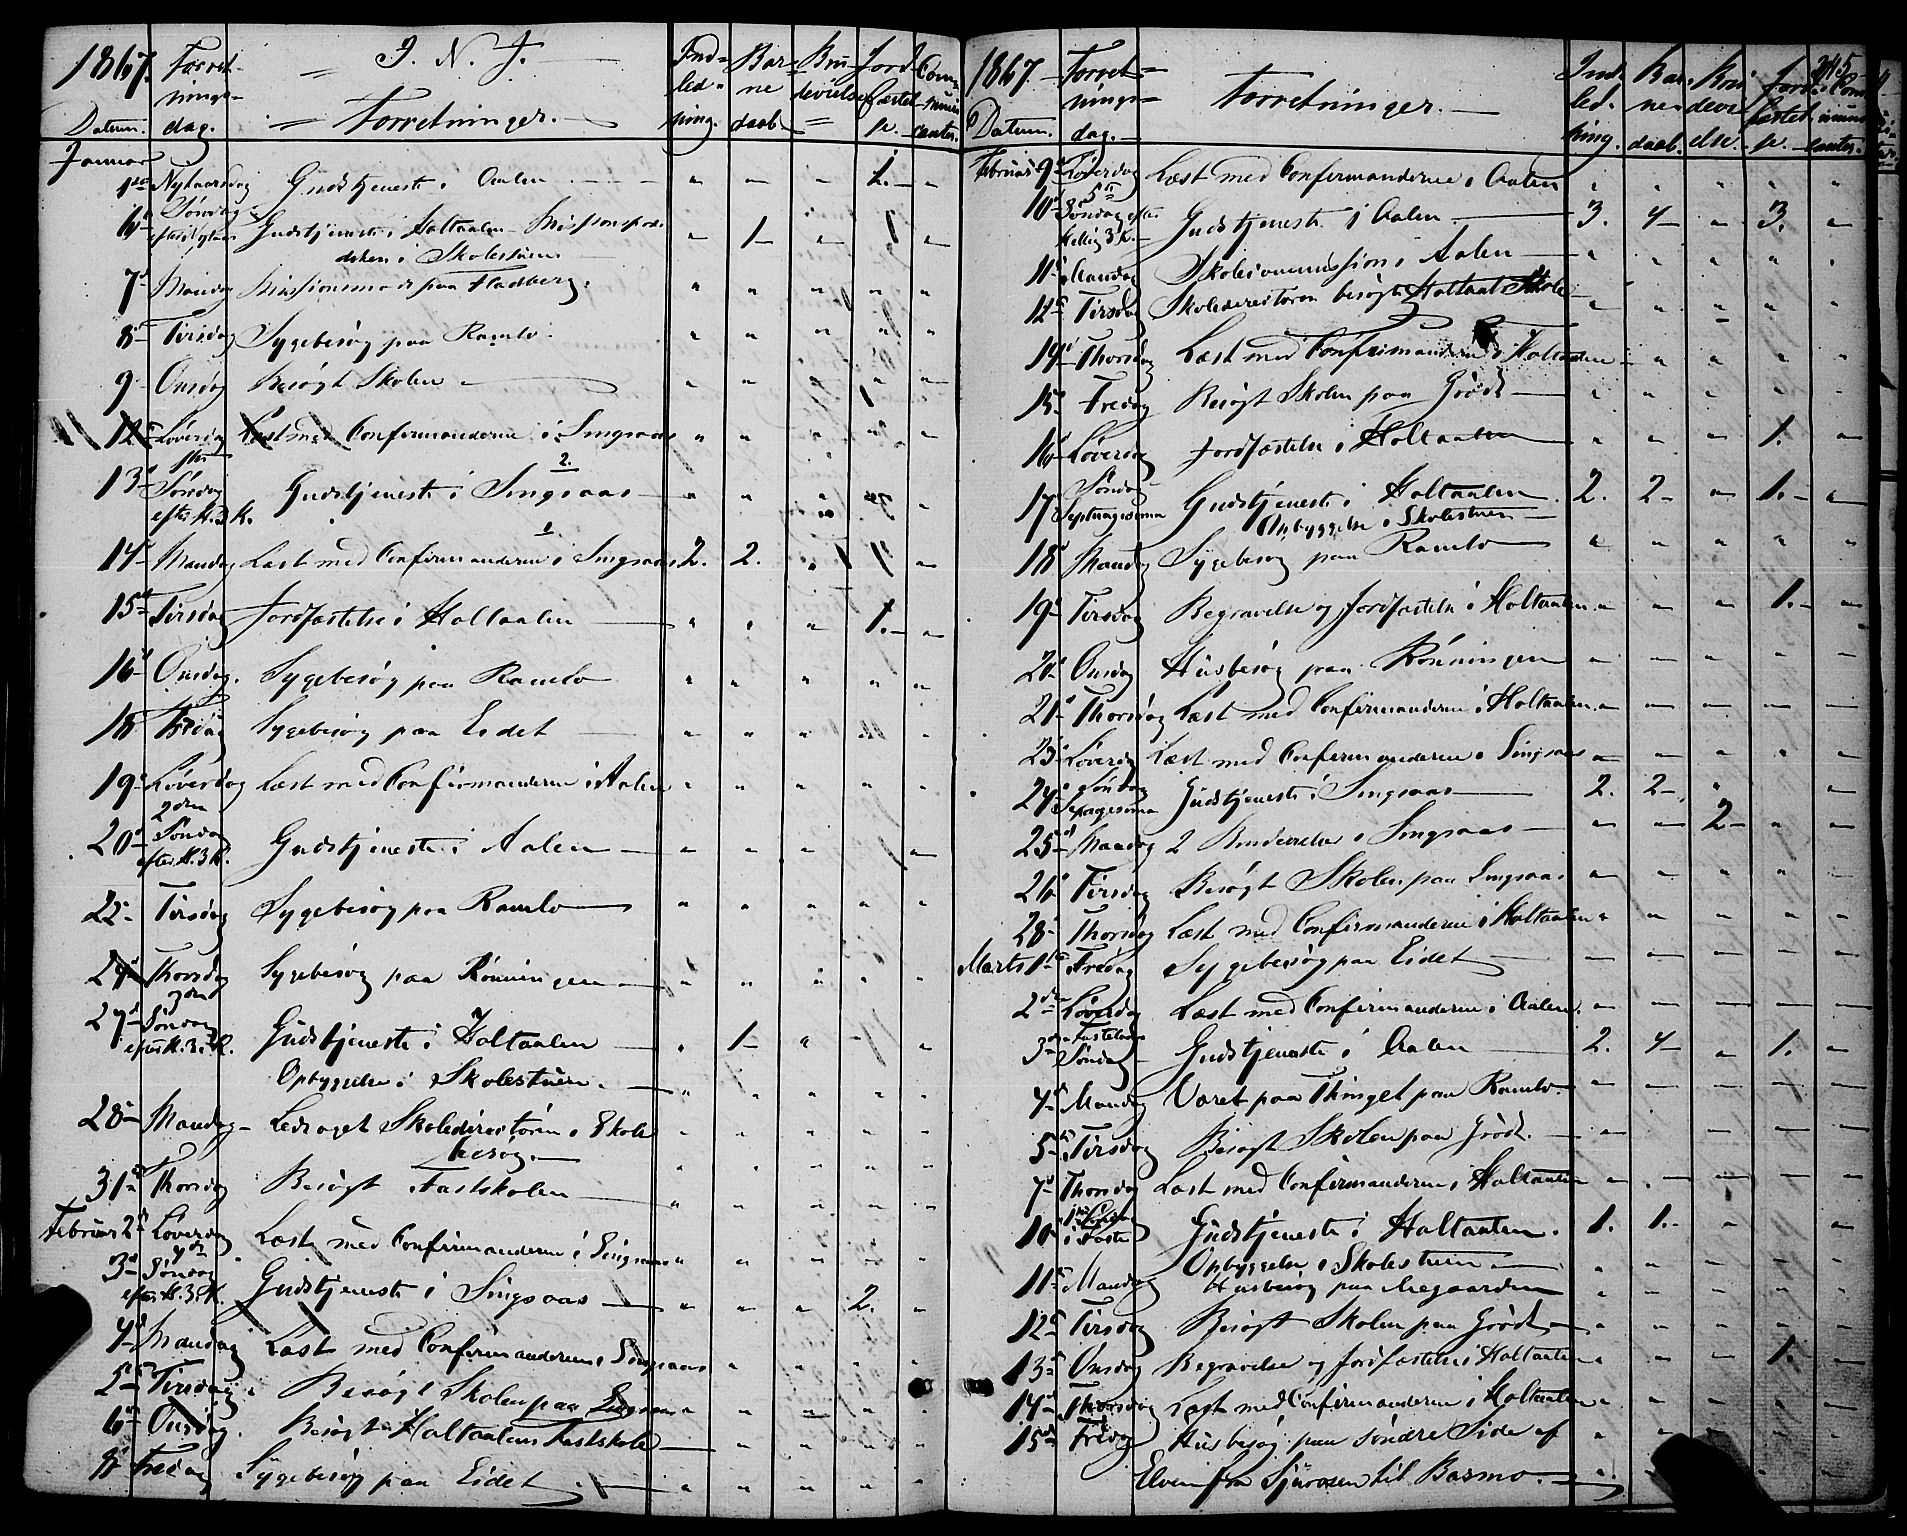 1867. Forret- J. N. J. Ind- Bar- Bru- Jord- Com-
nings- led- ne devielse fæstel- muni-
Datum. dag. Forretninger. ning. daab. se. canter.
Januar
1ste Nytaarsdag Gudstjeneste i Aalen " — — 1. "
6te Søndag efter Nytaar Gudstjeneste i Holtaalen - Missions " 1 — 1 "
i Skolestuen
7de Mandag Missionsmøde paa Fladberg. " " " " "
8de Tirsdag Sygebesøg paa Ramlo " " " " "
9 Onsdag Besøgt Skolen " " " "
12te Løverdag Læst med Confirmanderne i Singsaas " " " " "
1ste 2.
13de Søndag Gudstjeneste i Singsaas " " "
efter H. 3 K.
1.
14de Mandag Læst med Confirmanderne i Singsaas 2. 2. "
15de Tirsdag Jordfæstelse i Holtaalen " " " 1. "
16de Onsdag. Sygebesøg paa Ramlo " " " " "
18 Fredag Sygebesøg paa Eidet " " " " "
19de Løverdag Læst med Confirmanderne i Aalen " " " " "
2den
20de Søndag Gudstjeneste i Aalen " " " "
efter H. 3 K.
22 Tirsdag Sygebesøg paa Ramlo " " " " "
24de Thorsdag Sygebesøg paa Rønningen " " " " "
3die
27de Søndag Gudstjeneste i Holtaalen " 1 " " "
efter H. 3. K.
Opbyggelse i Skolestuen. " " " " "
28de Mandag Ledsaget Skoledirectøren i Skole " " " " "
besøg. " " " " "
31te Thorsdag Besøgt Fastskolen " " " " "
Februar 2den Løverdag Læst med Confirmanderne i Singsaas " " " " "
4de
3die Søndag Gudstjeneste i Singsaas " " " 2. "
efter H. 3. K.
4de Mandag Læst med Confirmanderne i Singsaas " " " "
5te Tirsdag Besøgt Skolen paa Singsaas " " " " "
6te Onsdag. Besøgt Holtaalens Fastskole " " " "
8de Fredag Sygebesøg paa Eidet " " " " "
245
1867. Forret- Ind- Bar- Bru- Jord- Com-
nings- Forretninger. led- ne- devi- fæstel- muni-
Datum. dag. ning. daab. else. se. canter.
Februar 9de Løverdag Læst med Confirmanderne i Aalen " " " " "
5te
10de Søndag efter Gudstjeneste i Aalen. 3. 4 " 3. "
Hellig 3 K.
11te Mandag Skolecommission i Aalen " " " " "
12te Tirsdag Skoledirectøren besøgt Holtaal. Skole " " " "
14de Thorsdag Læst med Confirmanderne i Holtaalen " " " " "
15de Fredag Besøgt Skolen paa Grødt " " " " "
16de Løverdag Jordfæstelse i Holtaalen " " " 1. "
17de Søndag Septuagesima Gudstjeneste i Holtaalen. 2. 2 " 1. "
Opbyggelse i Skolestuen
18de Mandag Sygebesøg paa Ramlo " " " " "
19de Tirsdag Begravelse og Jordfæstelse i Holtaalen " " " 1. "
20de Onsdag Husbesøg paa Rønningen " " " " "
21de Thorsdag Læst med Confirmanderne i Holtaalen. " " " " "
23de Løverdag Læst med Confirmanderne i Singsaas " " " " "
24de Søndag Sexagesima Gudstjeneste i Singsaas 2. 2 " "
25de Mandag 2 Brudevielser i Singsaas " " 2 " "
26de Tirsdag Besøgt Skolen paa Singsaas " " " " "
28de Thorsdag Læst med Confirmanderne i Holtaalen " " " " "
Marts 1ste Fredag Sygebesøg paa Eidet " " " " "
2den Løverdag Læst med Confirmanderne i Aalen. " " " " "
3die Fastelavns Søndag Gudstjeneste i Aalen 2. 4 " 1. "
4de Mandag Været paa Thinget paa Ramlo " " " " "
5te Tirsdag Besøgt Skolen paa Grødt. " " " " "
7de Thorsdag Læst med Confirmanderne i Holtaalen " " " " "
10de 1ste Søndag i Faste Gudstjeneste i Holtaalen. 1. 1. " " "
Opbyggelse i Skolestuen " " " " "
11te Mandag Husbesøg paa Aegaarden " " " " "
12te Tirsdag Besøgt Skolen paa Grødt " " " " "
13de Onsdag Begravelse og Jordfæstelse i Holtaalen " " " 1. "
14de Thorsdag Læst med Confirmanderne i Holtaalen " " " " "
15de Fredag Husbesøg paa søndre Side af " " " "
Elven fra Sjurosen til Basmo. " " " "